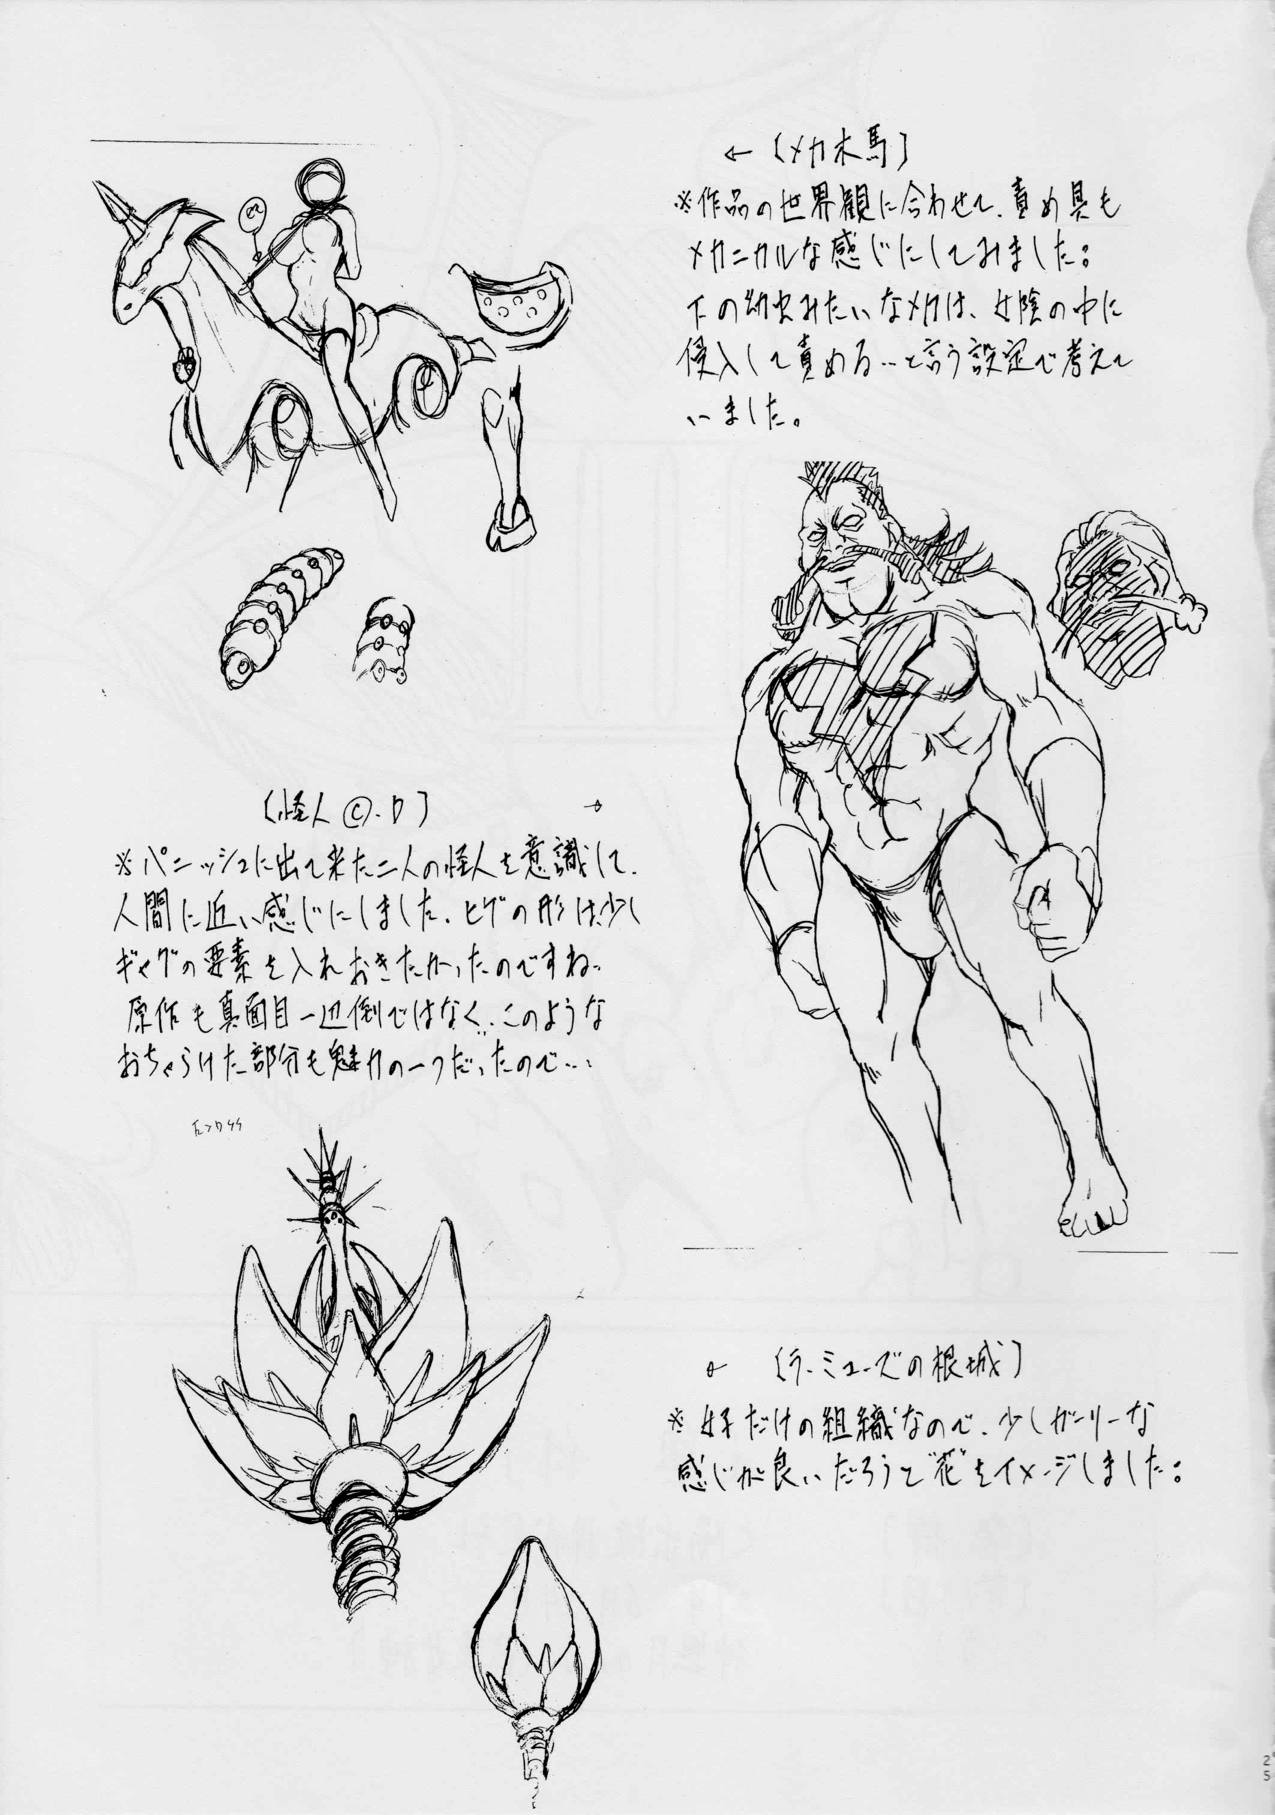 ← 〔メカ木馬〕
※作品の世界観に合わせて、責め具も
メカニカルな感じにしてみました。
下の幼虫みたいなメカは、女陰の中に
侵入して責める…と言う設定で考えて
いました。
〔怪人©.D〕 →
※パニッシュに出て来た二人の怪人を意識して、
人間に近い感じにしました。ヒゲの形は少し
ギャグの要素を入れおきたかったのですね…
原作も真面目一辺倒ではなく…このような
おちゃらけた部分も魅力の一つだったので…
← 〔ラ・ミューズの根城〕
※女子だけの組織なので、少しガーリーな
感じが良いだろうと"花"をイメージしました。
25